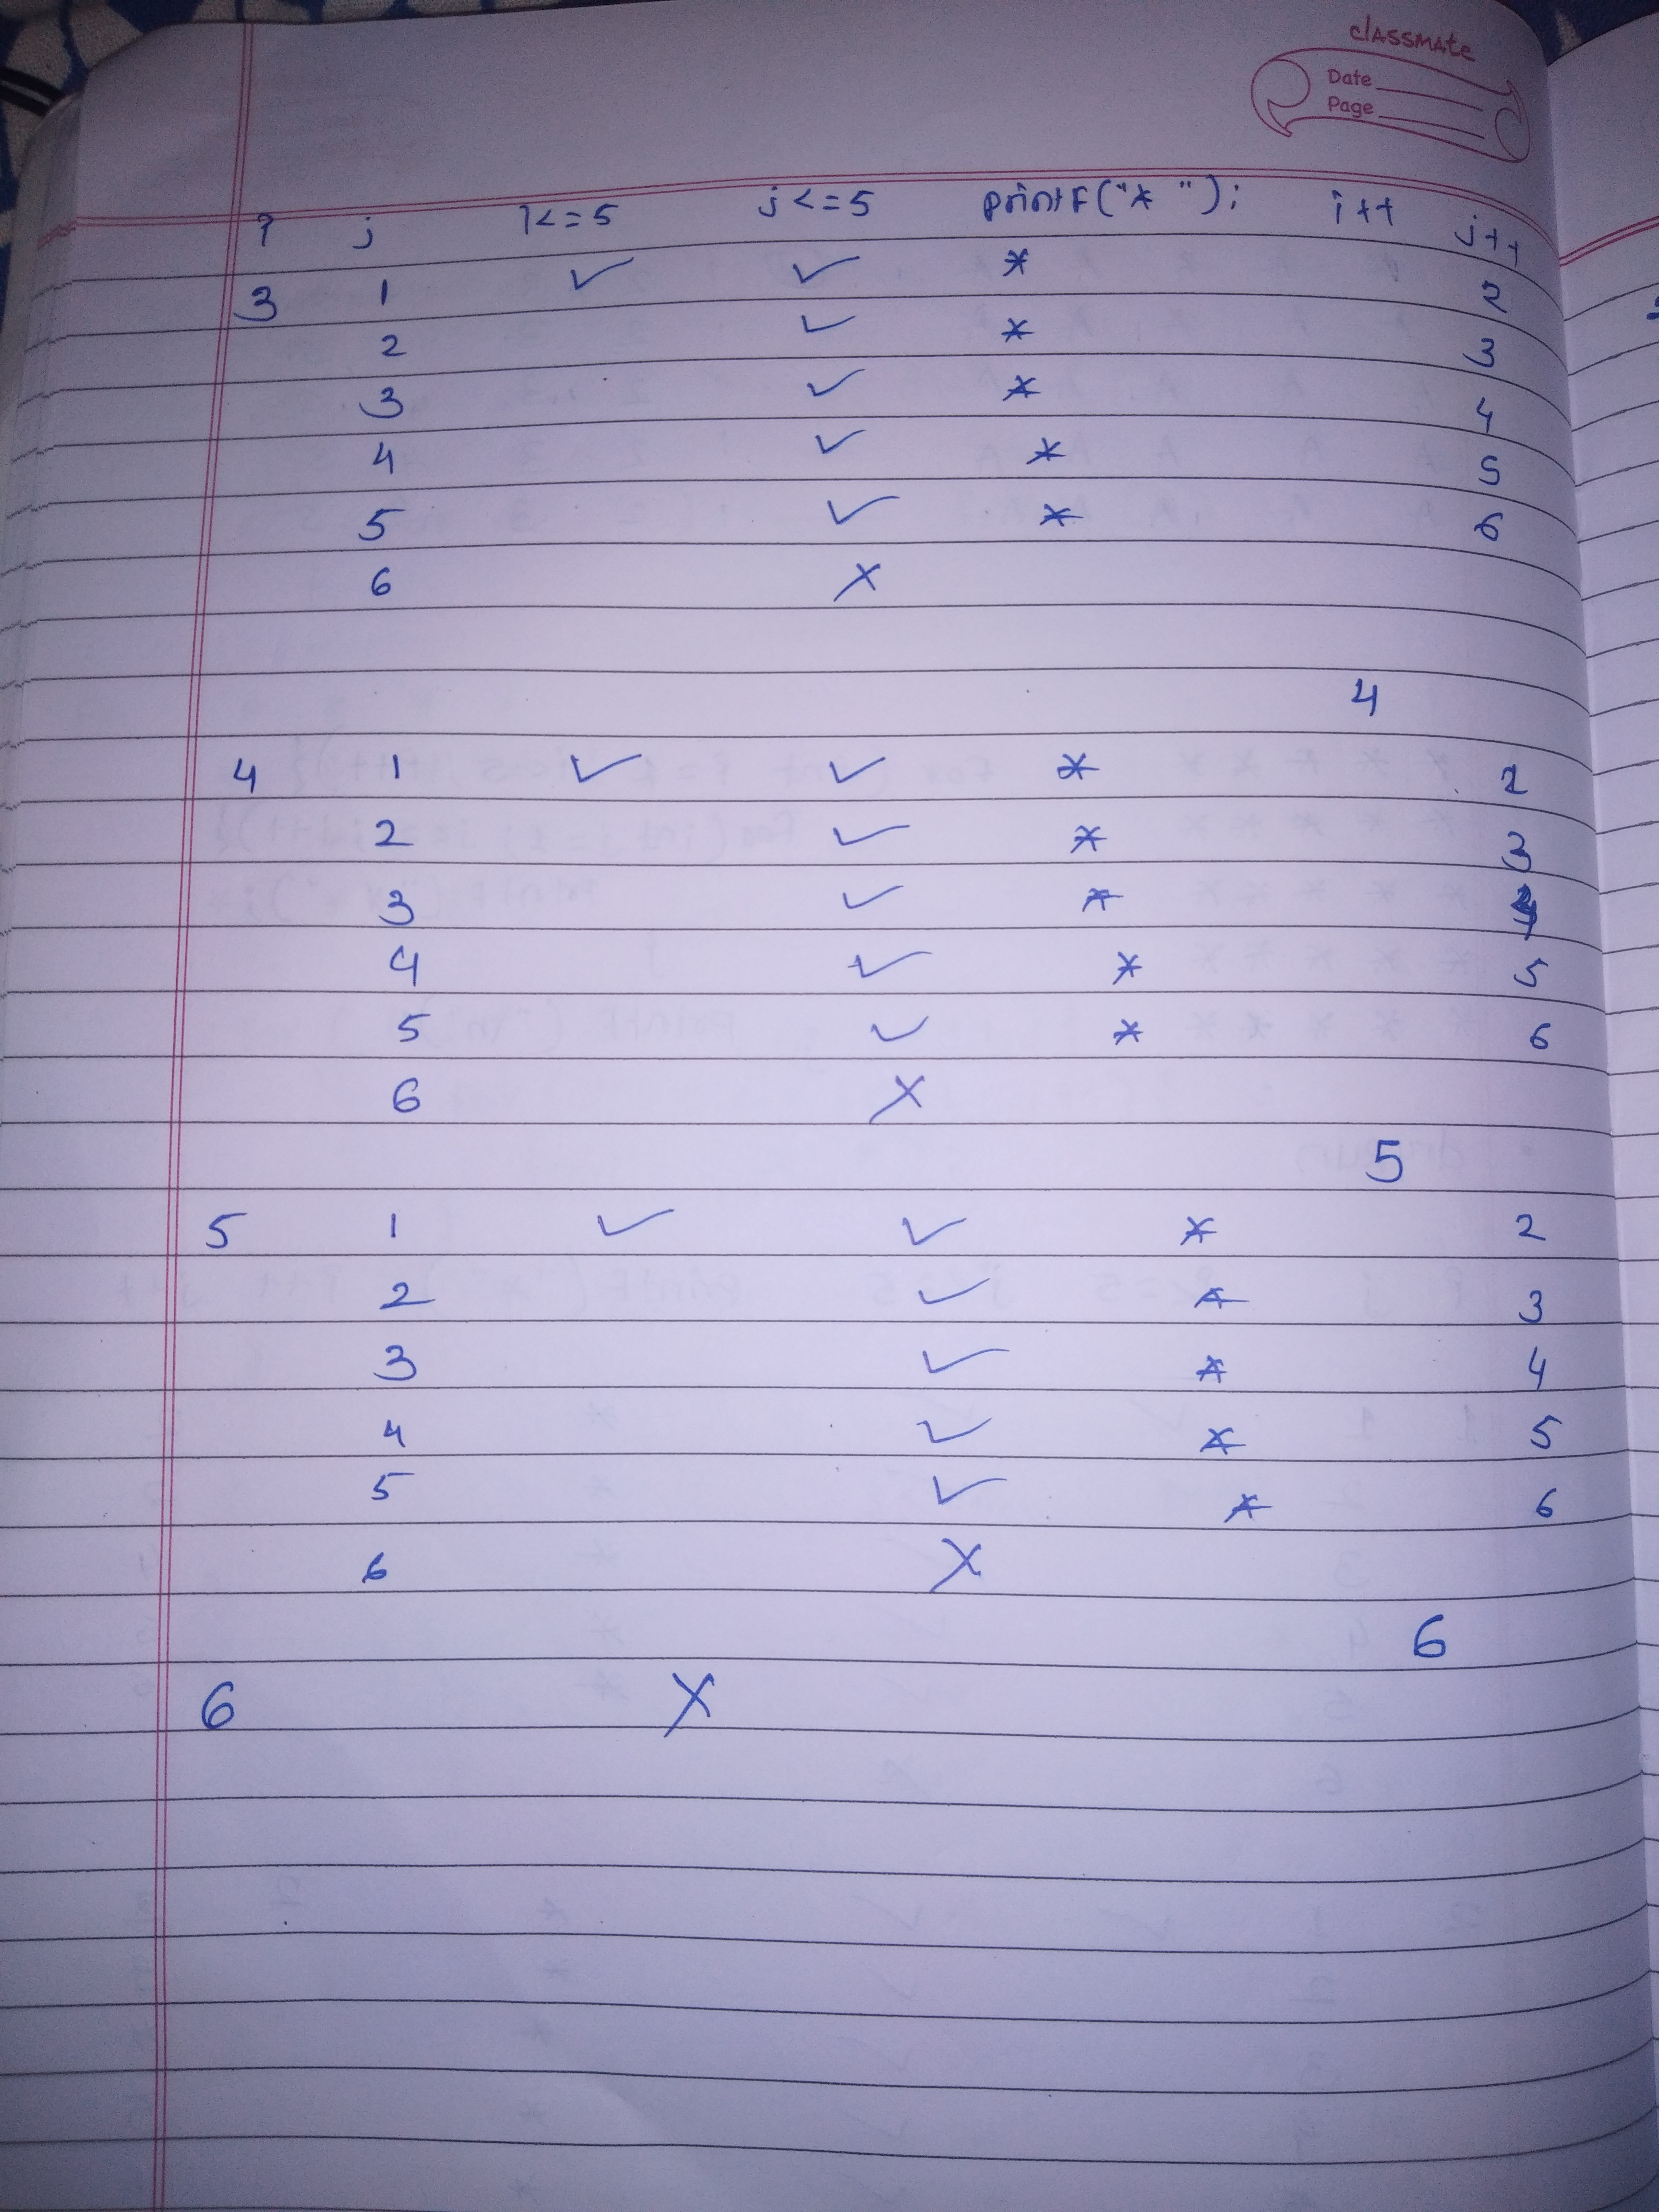 classmate
Date
Page
i j i<=5 j<=5 printf("* "); i++ j++
3 1 ✓ ✓ * 2
2 ✓ * 3
3 ✓ * 4
4 ✓ * 5
5 ✓ * 6
6 ×
4
4 1 ✓ ✓ * 2
2 ✓ * 3
3 ✓ * 4
4 ✓ * 5
5 ✓ * 6
6 ×
5
5 1 ✓ ✓ * 2
2 ✓ * 3
3 ✓ * 4
4 ✓ * 5
5 ✓ * 6
6 ×
6
6 ×